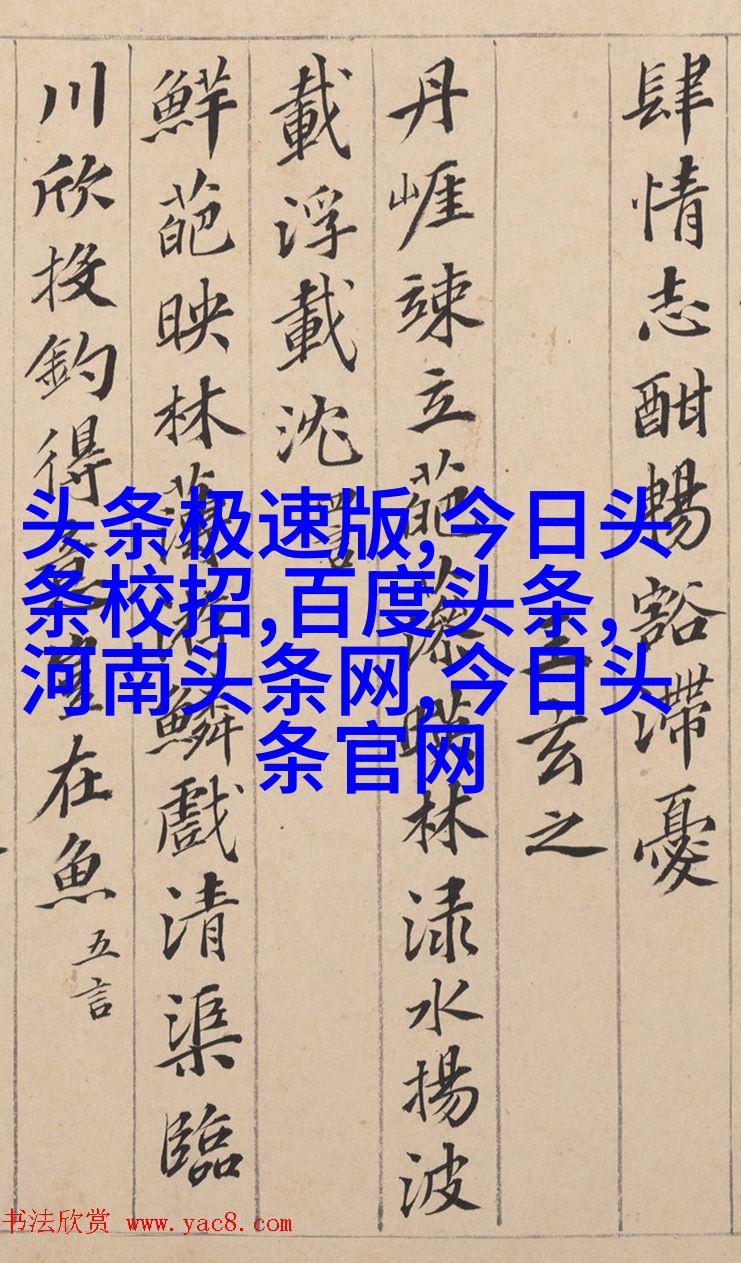 肆情志酣暢豁滯憂
王玄之
丹崕竦立葩藻暎林渌水揚波
載浮載沈
鮮葩映林薄游鱗戲清渠臨
川欣投釣得意豈在魚 五言
头条极速版,今日头
条校招,百度头条,
河南头条网,今日头
条官网
书法欣赏 www.yac8.com